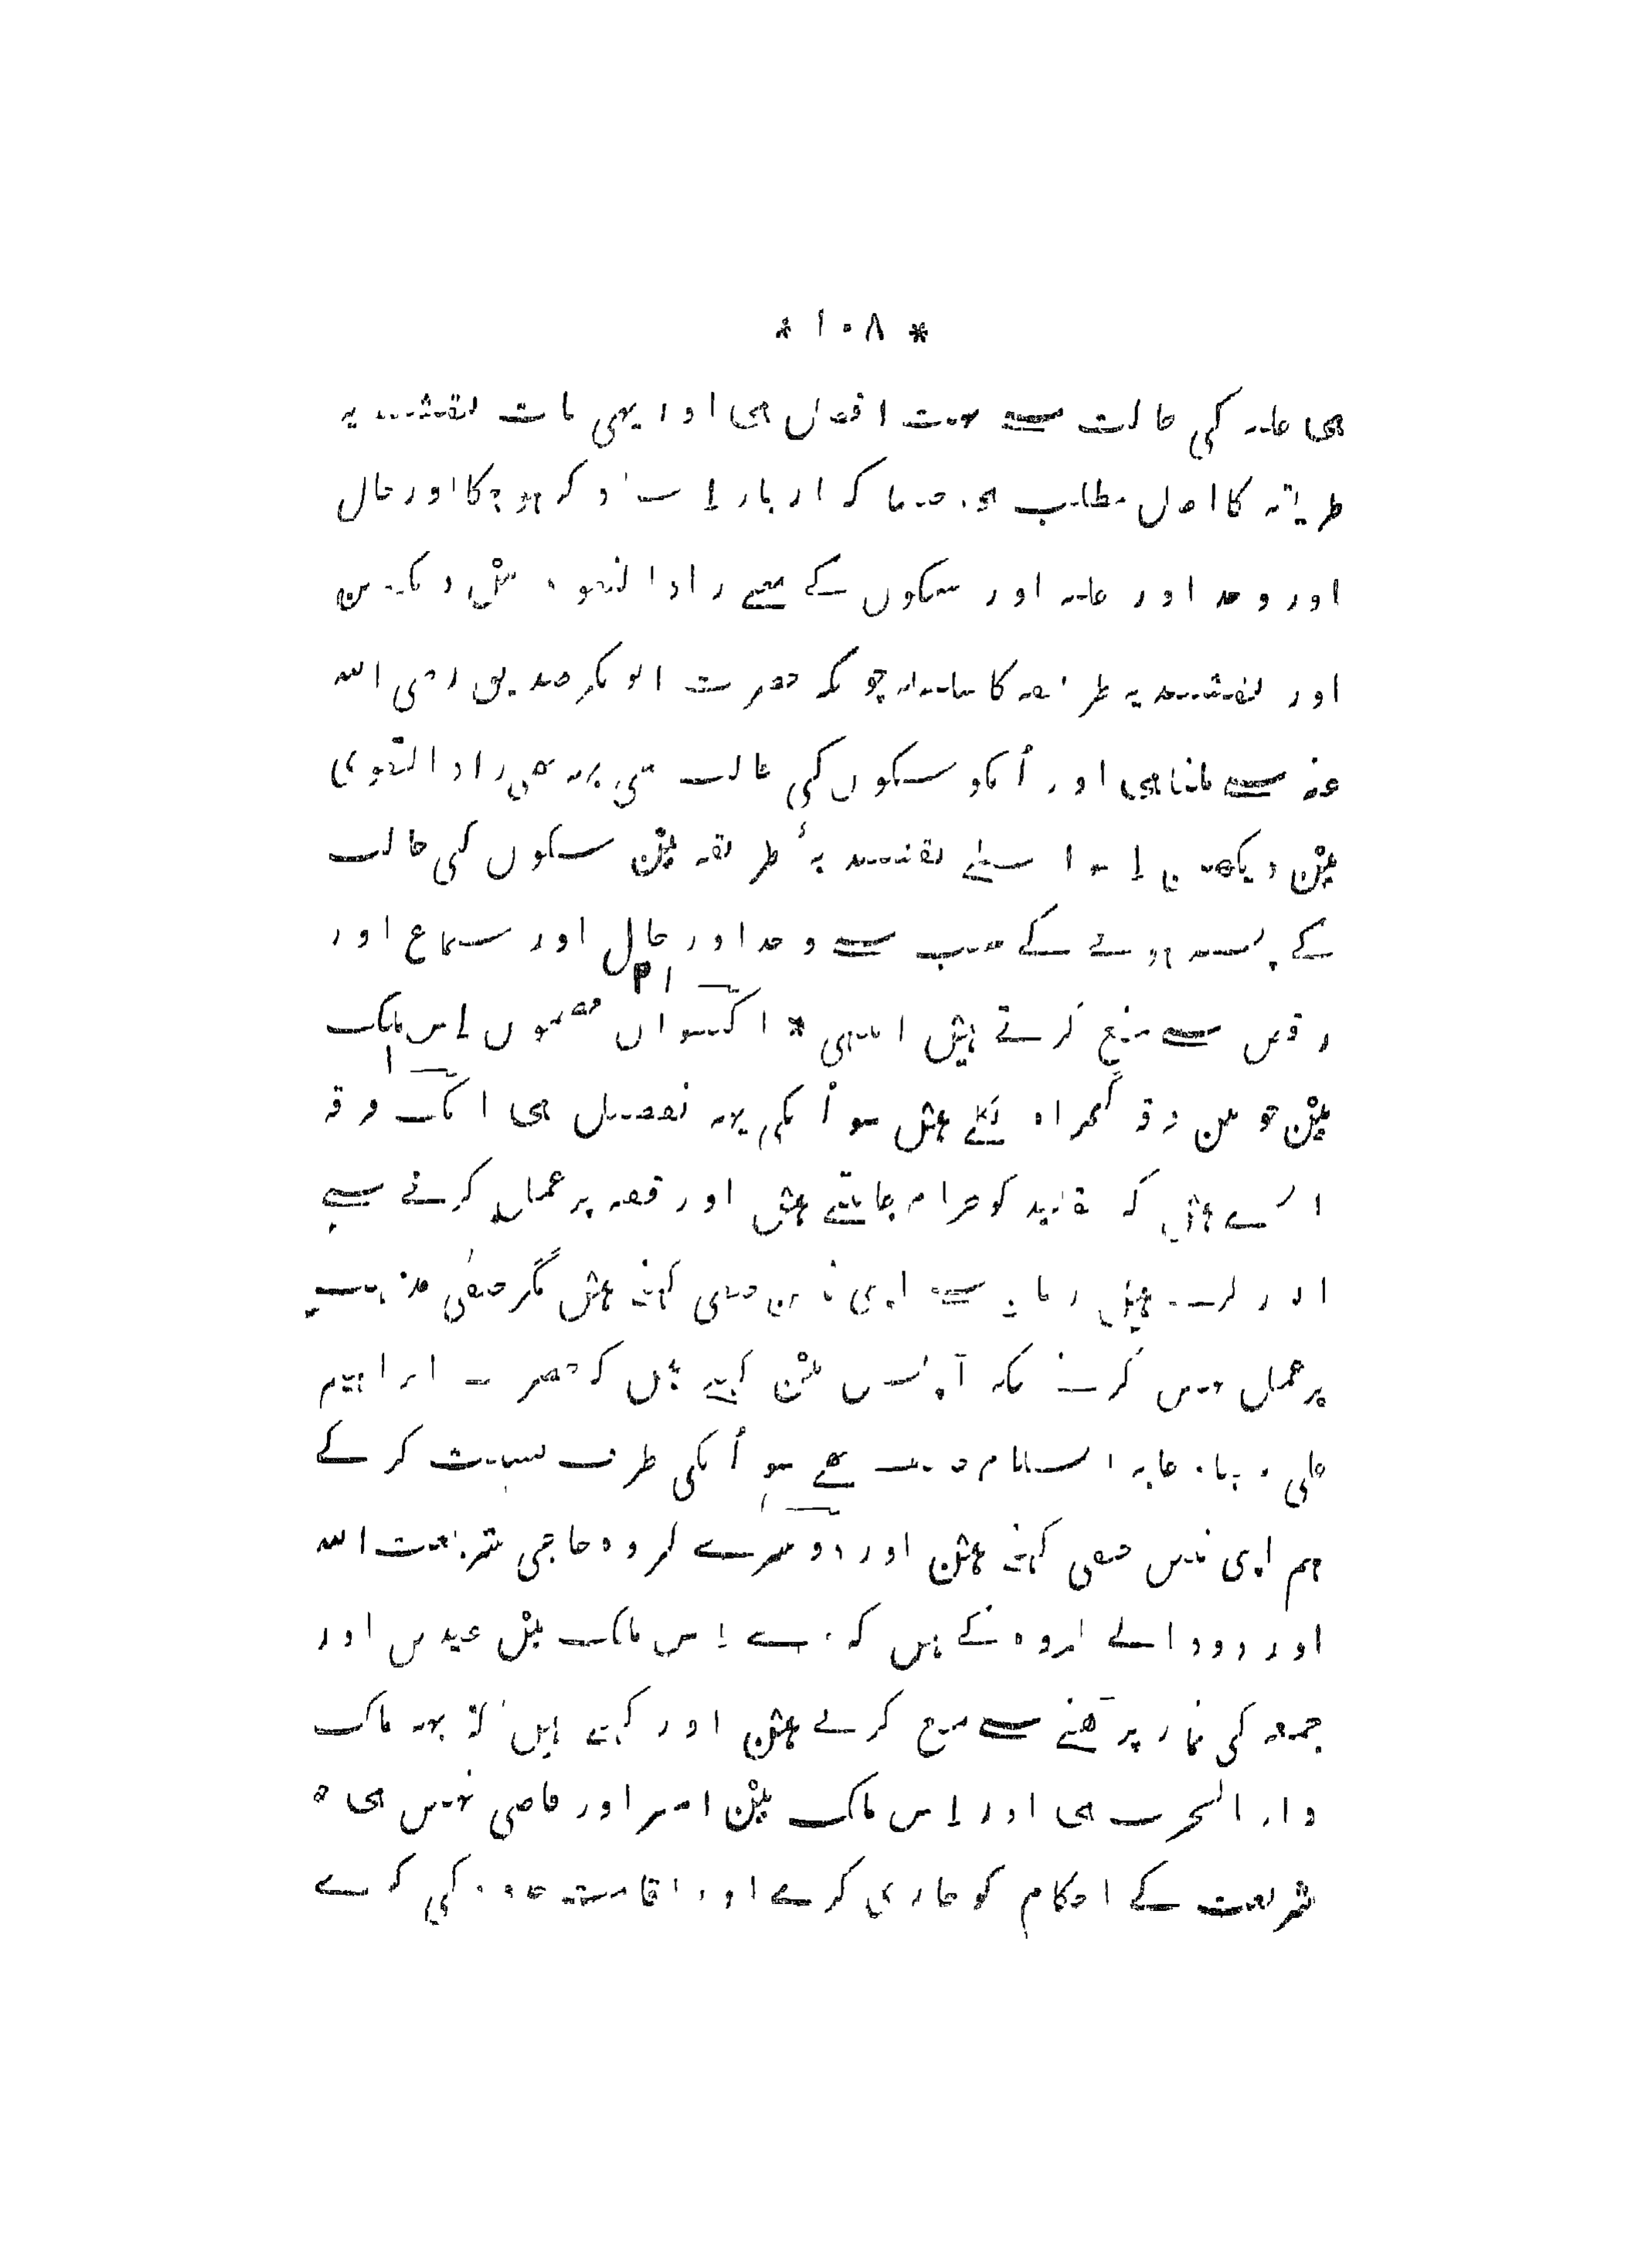 * ۱۰۸ *
هی غلبہ کی حالت سے بہت افضل هی اور یہی بات نقشبندیہ
طریقہ کا اصل مطلب هی جیسا کہ اوپر اِسکا ذکر ہو چکا اور حال
اور وجد اور غلبہ اور سکون کے معنے زاد التقویٰ میں دیکھین
اور نقشبندیہ طریقہ کا سلسلہ چونکہ حضرت ابو بکر صدیق رضی اللہ
عنہ سے ملتا هی اور اُنکو سکون کی حالت تھی یہہ بھی زاد التقوی
میں دیکھین اِسواسطے نقشبندیہ طریقہ میں سکون کی حالت
کے پسند ہونے کے سبب سے وجد اور حال اور سماع اور
رقص سے منع کرتے ہیں انتہی * اکیسواں مضمون اِس ملک
میں جو تین فرقہ گمراہ نکلے ہیں سو اُنکی یہہ تفصیل هی ایک فرقہ
ایسے ہیں کہ تقلید کو حرام جانتے ہیں اور فقہ پر عمل کرنے سے
انکار کرتے ہیں زبان سے اپنے تئیں حنفی کہتے ہیں مگر حنفی مذہب
پر عمل نہیں کرتے بلکہ آپس میں کہتے ہیں کہ حضرت ابراہیم
علی نبینا و علیہ السلام حنیف تھے سو اُنکی طرف نسبت کر کے
ہم اپنے تئیں حنفی کہتے ہیں اور دوسرے گروہ حاجی شریعت اللہ
اور دودوا کے گروہ کے ہیں کہ وے اِس ملک میں عیدین اور
جمعہ کی نماز پڑھنے سے منع کرتے ہیں اور کہتے ہیں کہ یہہ ملک
دار الحرب هی اور اِس ملک میں امیر اور قاضی نہیں هی کہ
شریعت کے احکام کو جاری کرے اور اقامت حدود کی کرے